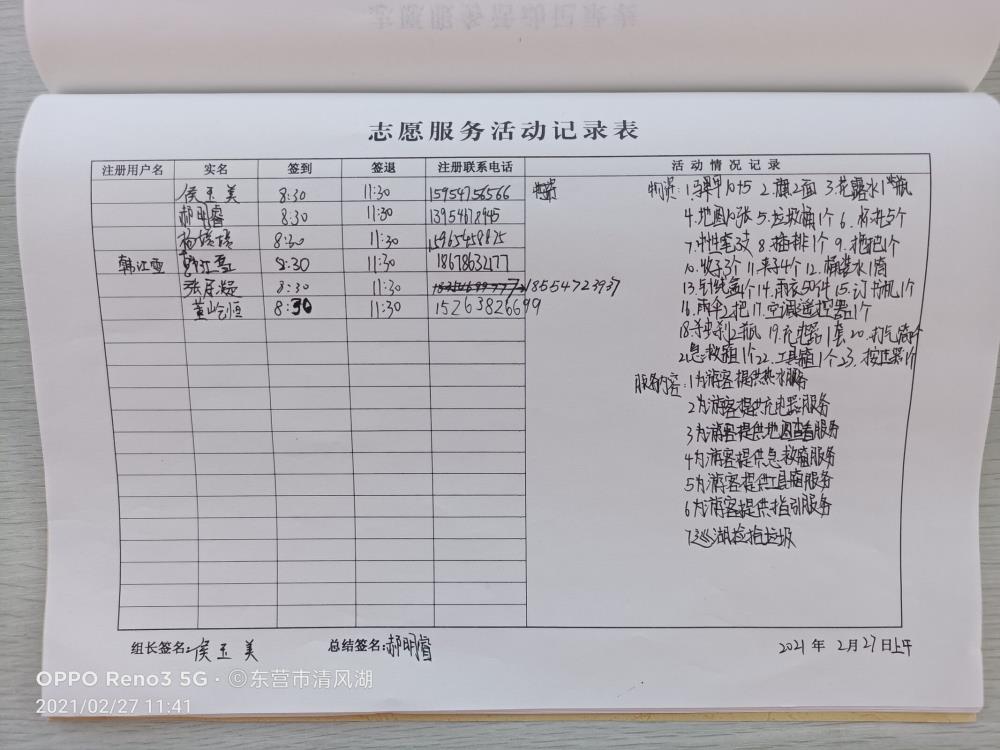 志愿服务活动记录表
注册用户名 实名 签到 签退 注册联系电话 活动情况记录
侯玉美 8:30 11:30 15954756566
郝明睿 8:30 11:30
8:30 11:30
韩江雪 韩江雪 8:30 11:30 18678632177
8:30 11:30 18554723937
8:30 11:30 15263826699
物资:1.马甲 2.旗2面 3.花露水1瓶
4.地图 5.垃圾桶1个 6.
7.中性笔3支 8.插排1个 9.拖把1个
10. 3个 11.夹子4个 12.桶装水1筒
13.针线盒1个 14.雨衣50件 15.订书机1个
16.雨伞2把 17.空调遥控器1个
18.杀虫剂2瓶 19.充电器1套 20.打气筒1个
21.急救箱1个 22.工具箱1个 23.
服务内容:1为游客提供热水服务
2为游客提供充电器服务
3为游客提供地图查看服务
4为游客提供急救箱服务
5为游客提供工具箱服务
6为游客提供指引服务
7巡湖捡拾垃圾
组长签名:侯玉美 总结签名:郝明睿 2021年2月27日上午
OPPO Reno3 5G · ©东营市清风湖
2021/02/27 11:41